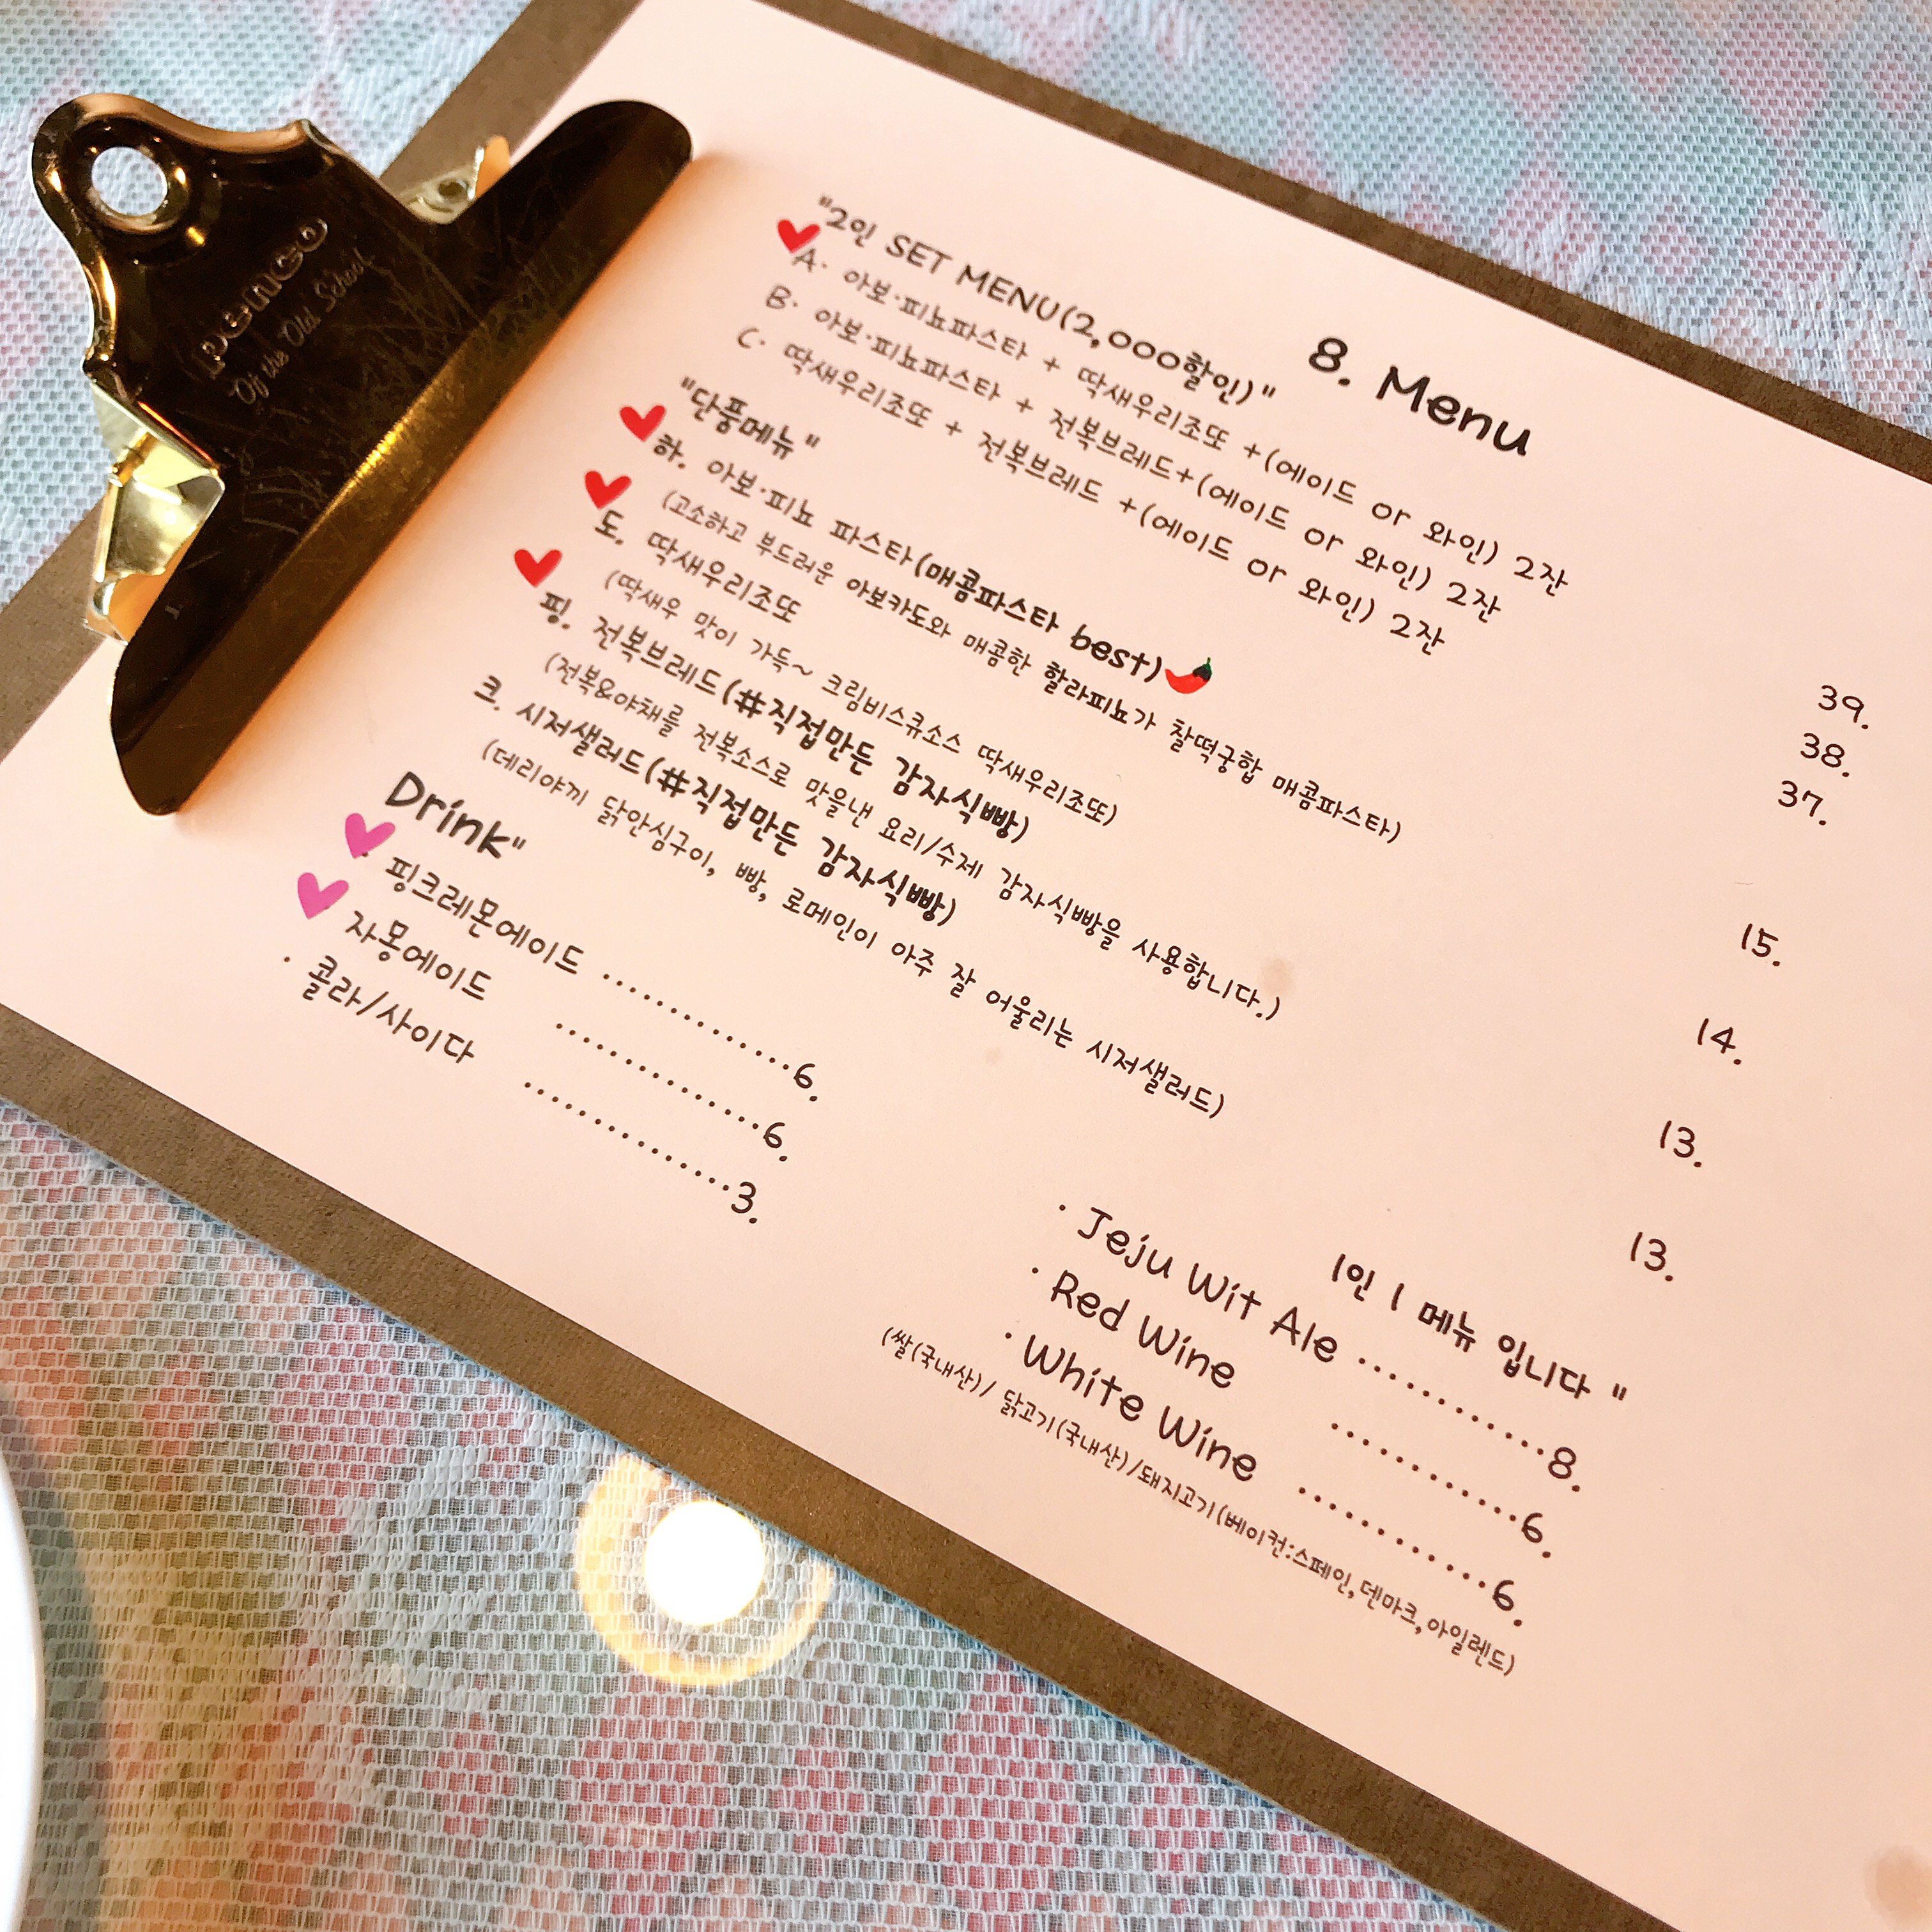 PENCO
Of the Old School
8. Menu
"2인 SET MENU(2,000할인)"
A. 아보·피뇨파스타 + 딱새우리조또 +(에이드 or 와인) 2잔 39.
B. 아보·피뇨파스타 + 전복브레드+(에이드 or 와인) 2잔 38.
C. 딱새우리조또 + 전복브레드 +(에이드 or 와인) 2잔 37.
"단품메뉴"
하. 아보·피뇨 파스타(매콤파스타 best) 15.
(고소하고 부드러운 아보카도와 매콤한 할라피뇨가 찰떡궁합 매콤파스타)
도. 딱새우리조또 14.
(딱새우 맛이 가득~ 크림비스큐소스 딱새우리조또)
핑. 전복브레드(#직접만든 감자식빵) 13.
(전복&야채를 전복소스로 맛을낸 요리/수제 감자식빵을 사용합니다.)
크. 시저샐러드(#직접만든 감자식빵) 13.
(데리야끼 닭안심구이, 빵, 로메인이 아주 잘 어울리는 시저샐러드)
1인 1 메뉴 입니다 "
Drink"
· 핑크레몬에이드 ..............6.
자몽에이드 ..............6.
· 콜라/사이다 ..............3.
· Jeju Wit Ale ............8.
· Red Wine ............6.
· White Wine ............6.
(쌀(국내산)/ 닭고기(국내산)/돼지고기(베이컨:스페인,덴마크,아일렌드)